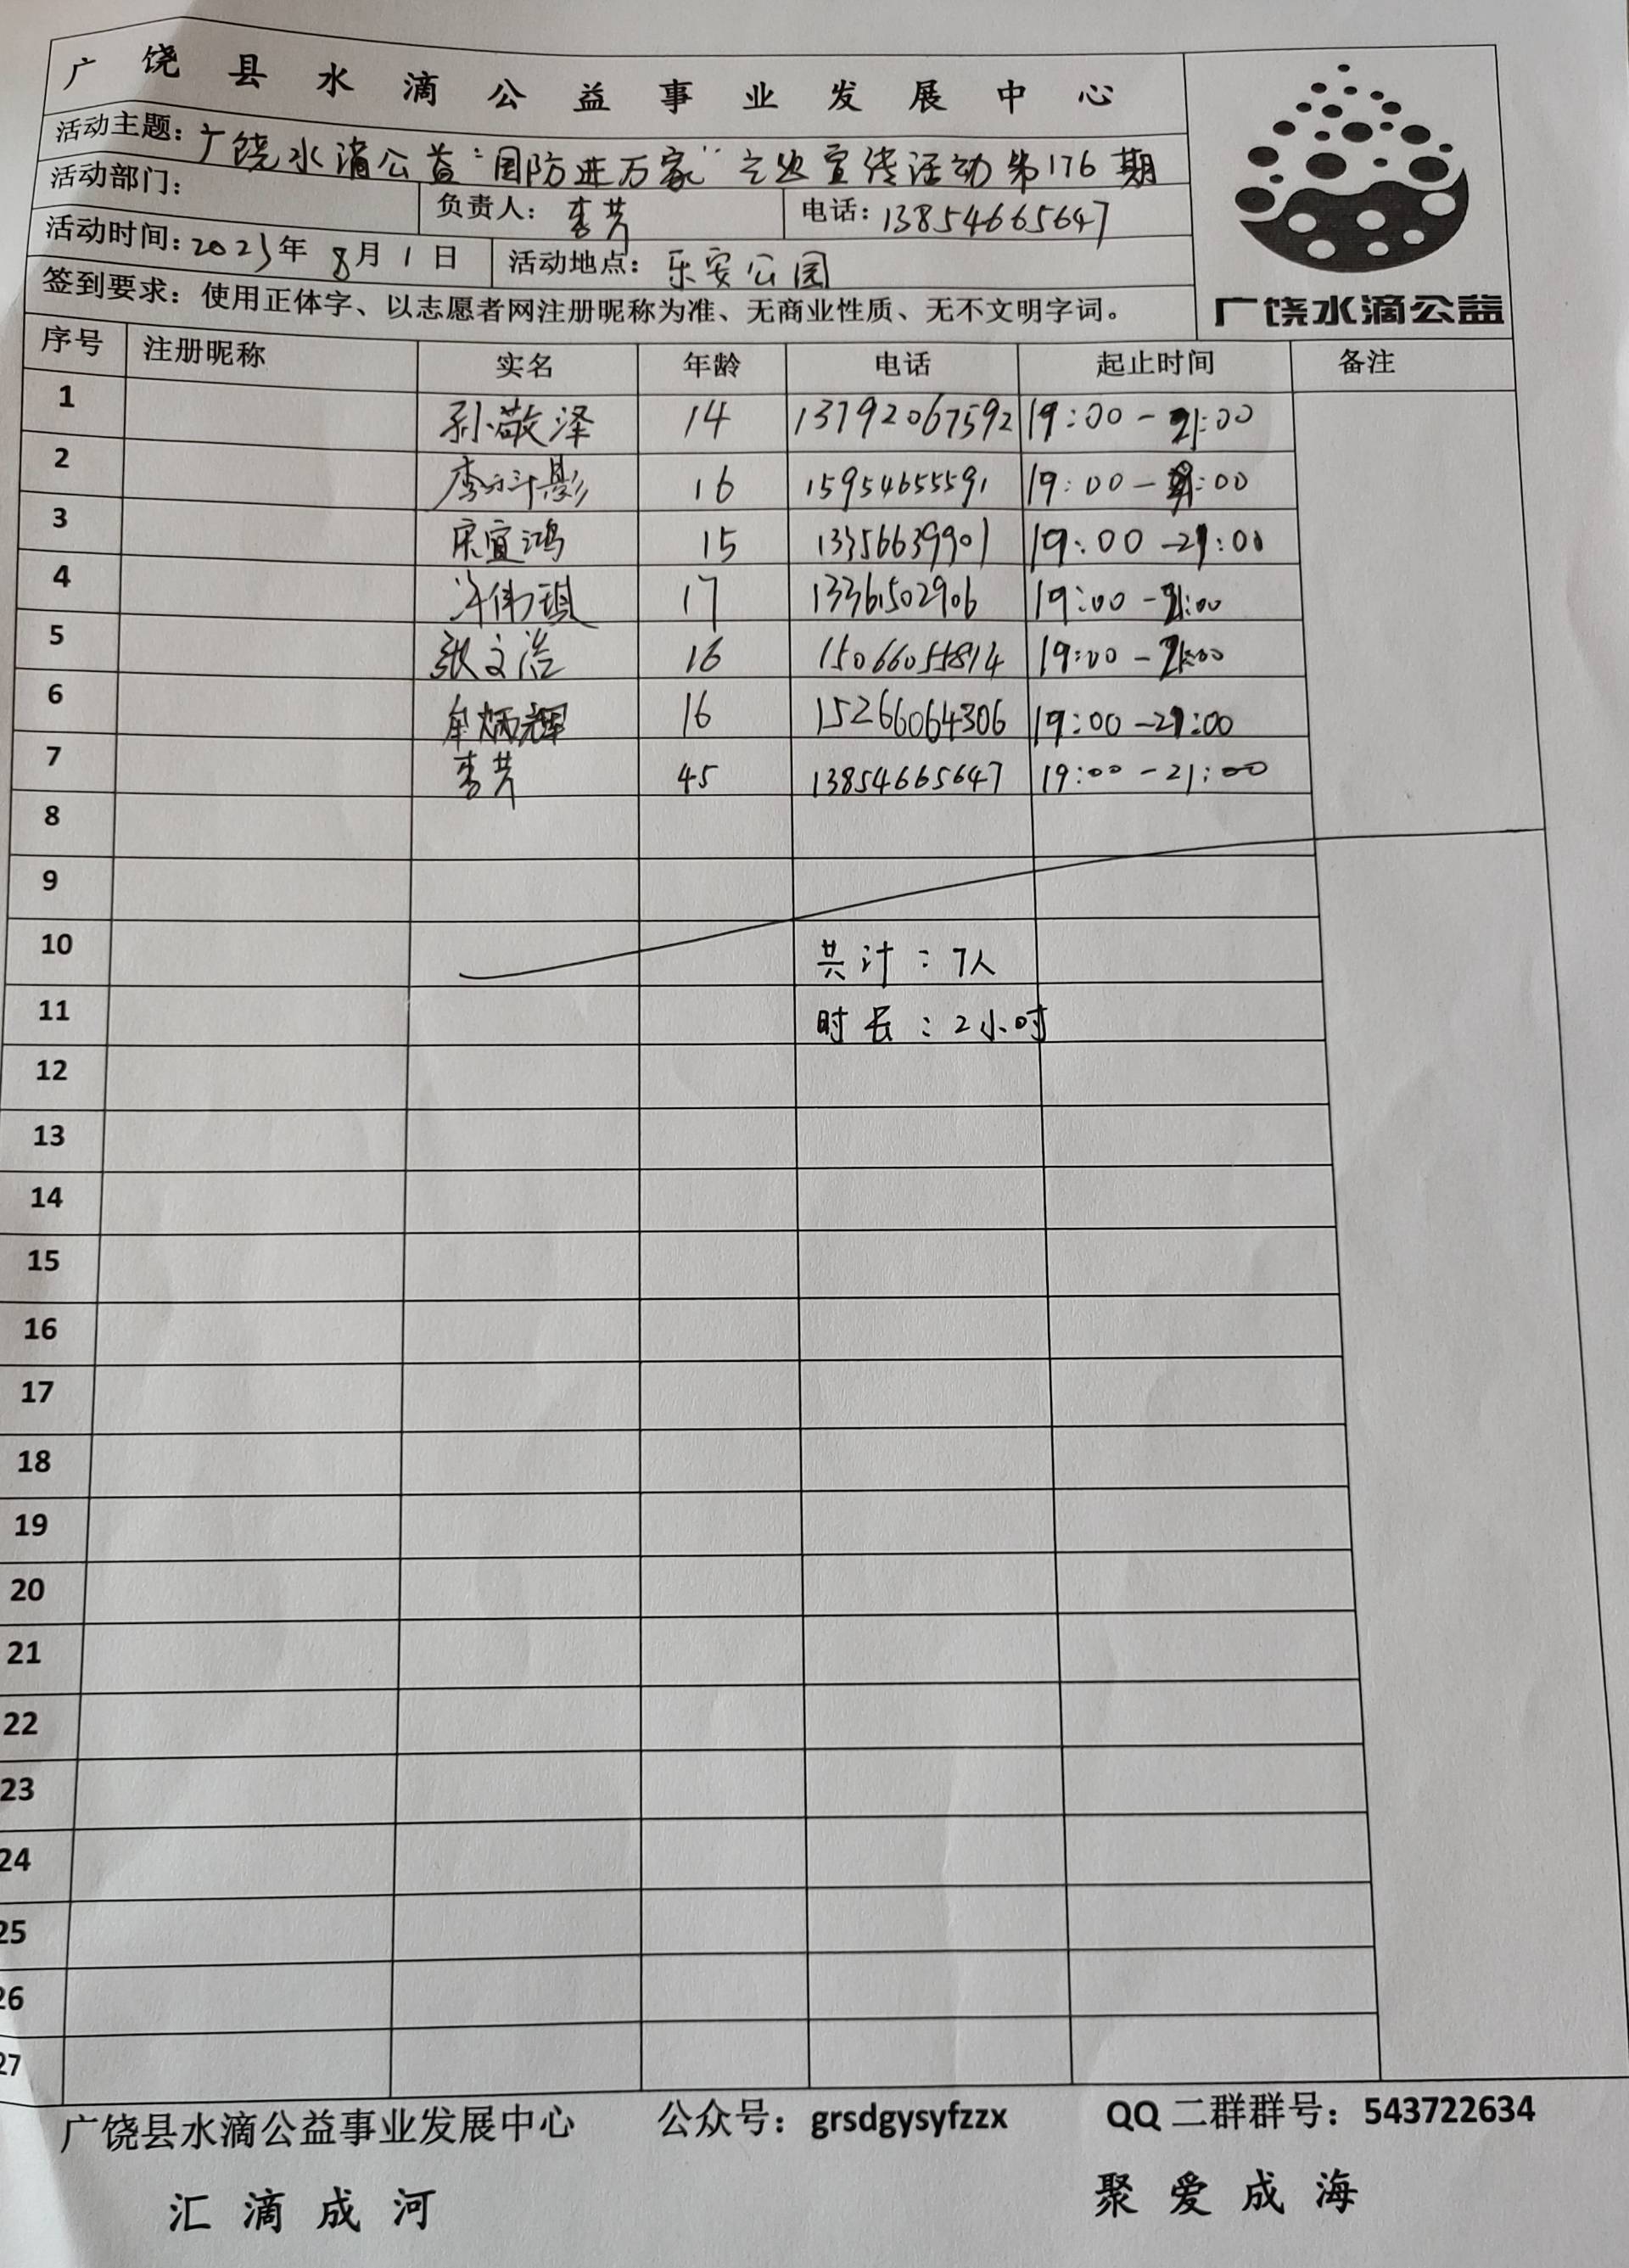 广饶县水滴公益事业发展中心
活动主题：广饶水滴公益“国防进万家”主题宣传活动第176期
活动部门： 负责人：李芳 电话：13854665647
活动时间：2023年8月1日 活动地点：乐安公园
签到要求：使用正体字、以志愿者网注册昵称为准、无商业性质、无不文明字词。
广饶水滴公益
序号 注册昵称 实名 年龄 电话 起止时间 备注
1 孙敬泽 14 13792067592 19:00-21:00
2 16 15954655591 19:00-21:00
3 宋宜鸿 15 13356639901 19:00-21:00
4 17 13361502906 19:00-21:00
5 张文浩 16 15066055814 19:00-21:00
6 牟炳辉 16 15266064306 19:00-21:00
7 李芳 45 13854665647 19:00-21:00
8
9
10 共计：7人
11 时长：2小时
12
13
14
15
16
17
18
19
20
21
22
23
24
25
26
27
广饶县水滴公益事业发展中心 公众号：grsdgysyfzzx QQ二群群号：543722634
汇滴成河 聚爱成海